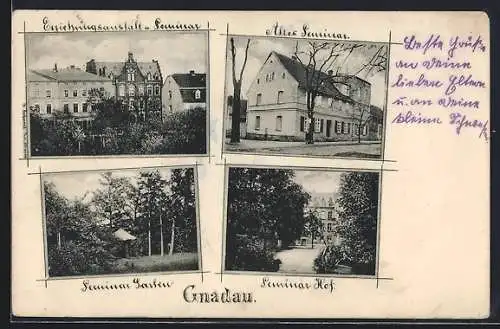 Erziehungsanstalt u. Seminar
Altes Seminar.
Beste Grüße
an Deine
lieben Eltern
u. an Deine
kleine Schwest
Seminar Garten
Seminar Hof.
Gnadau.